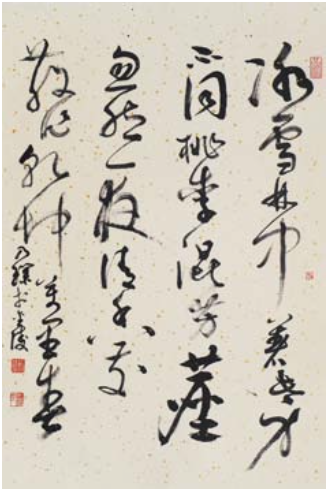 冰雪林中著此身
不同桃李混芳塵
忽然一夜清香發
散作乾坤萬里春
於金陵